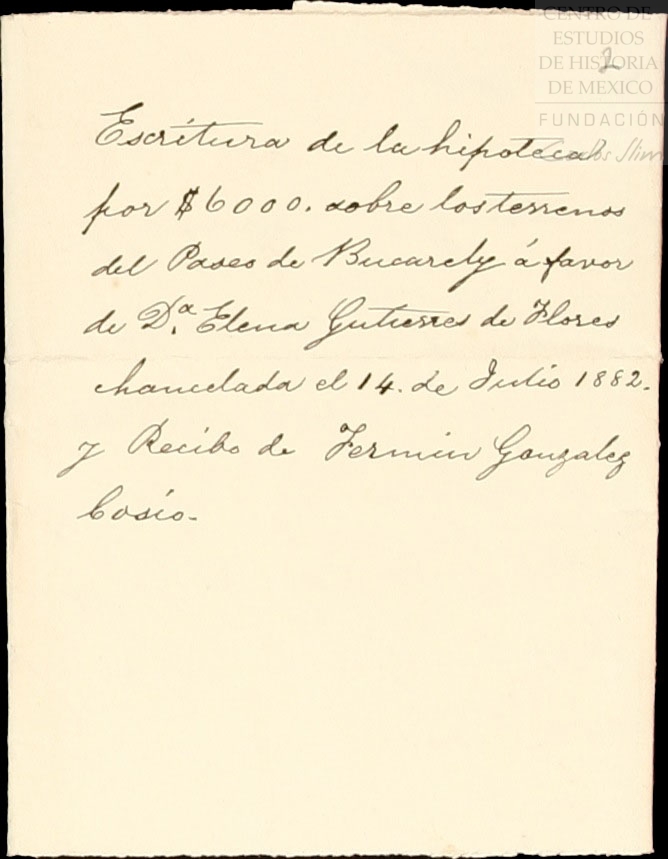 CENTRO DE
ESTUDIOS
DE HISTORIA
DE MEXICO
FUNDACIÓN
Carlos Slim
2
Escritura de la hipoteca
por $6000. sobre los terrenos
del Paseo de Bucarely á favor
de D.ª Elena Gutierres de Flores
chancelada el 14. de Julio 1882.
y Recibo de Fermin Gonzalez
Cosío.